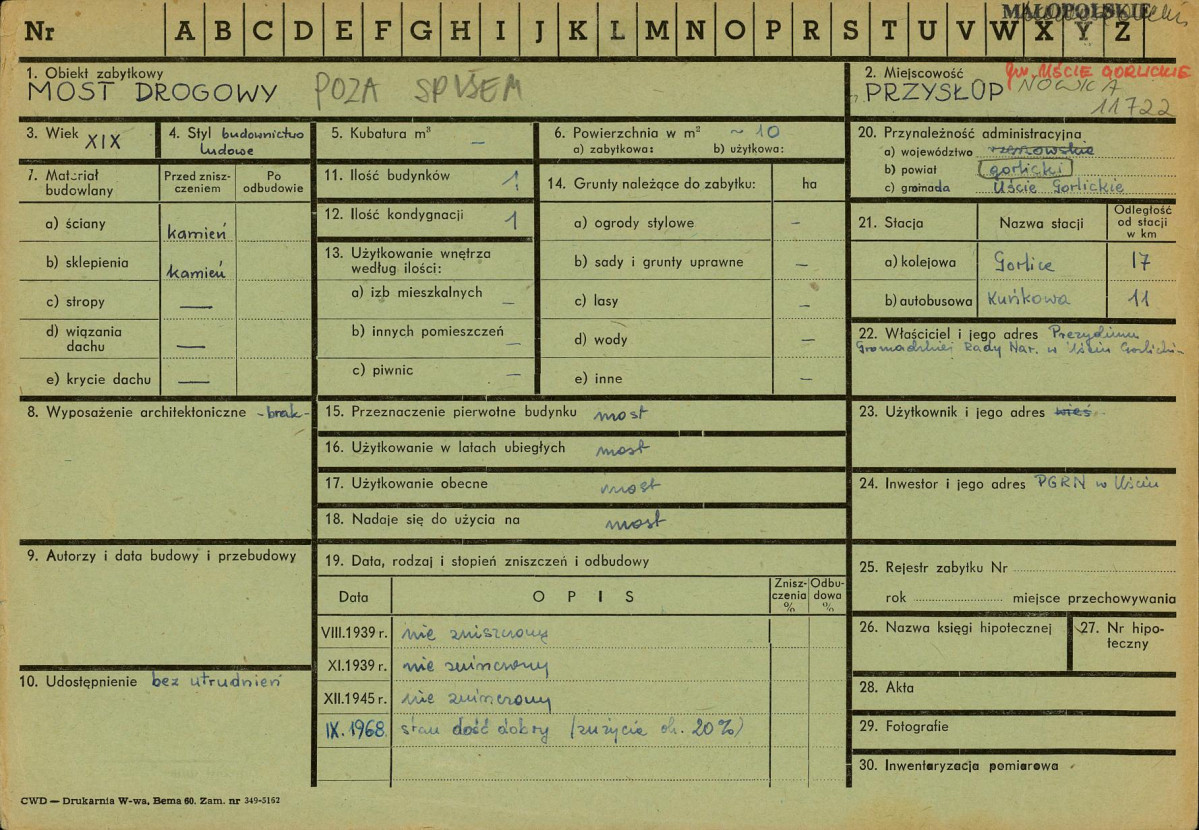 MAŁOPOLSKIE
Nr A B C D E F G H I J K L M N O P R S T U V W X Y Z
1. Obiekt zabytkowy
MOST DROGOWY POZA SPISEM
2. Miejscowość gm. UŚCIE GORLICKIE
PRZYSŁOP NOWICA
11722
3. Wiek XIX
4. Styl budownictwo
ludowe
5. Kubatura m³ —
6. Powierzchnia w m² ~ 10
a) zabytkowa: b) użytkowa:
7. Materiał
budowlany
Przed znisz-
czeniem
Po
odbudowie
a) ściany kamień
b) sklepienia kamień
c) stropy —
d) wiązania
dachu —
e) krycie dachu —
8. Wyposażenie architektoniczne -brak-
9. Autorzy i data budowy i przebudowy
10. Udostępnienie bez utrudnień
11. Ilość budynków 1
12. Ilość kondygnacji 1
13. Użytkowanie wnętrza
według ilości:
a) izb mieszkalnych —
b) innych pomieszczeń —
c) piwnic —
14. Grunty należące do zabytku: ha
a) ogrody stylowe —
b) sady i grunty uprawne —
c) lasy —
d) wody —
e) inne —
15. Przeznaczenie pierwotne budynku most
16. Użytkowanie w latach ubiegłych most
17. Użytkowanie obecne most
18. Nadaje się do użycia na most
19. Data, rodzaj i stopień zniszczeń i odbudowy
Data OPIS
Znisz-
czenia
%
Odbu-
dowa
%
VIII.1939 r. nie zniszczony
XI.1939 r. nie zniszczony
XII.1945 r. nie zniszczony
IX.1968 stan dość dobry (zużycie ok. 20%)
20. Przynależność administracyjna
a) województwo rzeszowskie
b) powiat gorlicki
c) gromada Uście Gorlickie
21. Stacja Nazwa stacji
Odległość
od stacji
w km
a) kolejowa Gorlice 17
b) autobusowa Kuńkowa 11
22. Właściciel i jego adres Prezydium
Gromadzkiej Rady Nar. w Uściu Gorlickim
23. Użytkownik i jego adres wieś
24. Inwestor i jego adres PGRN w Uściu
25. Rejestr zabytku Nr
rok miejsce przechowywania
26. Nazwa księgi hipotecznej
27. Nr hipo-
teczny
28. Akta
29. Fotografie
30. Inwentaryzacja pomiarowa
CWD — Drukarnia W-wa, Bema 60. Zam. nr 349-5162